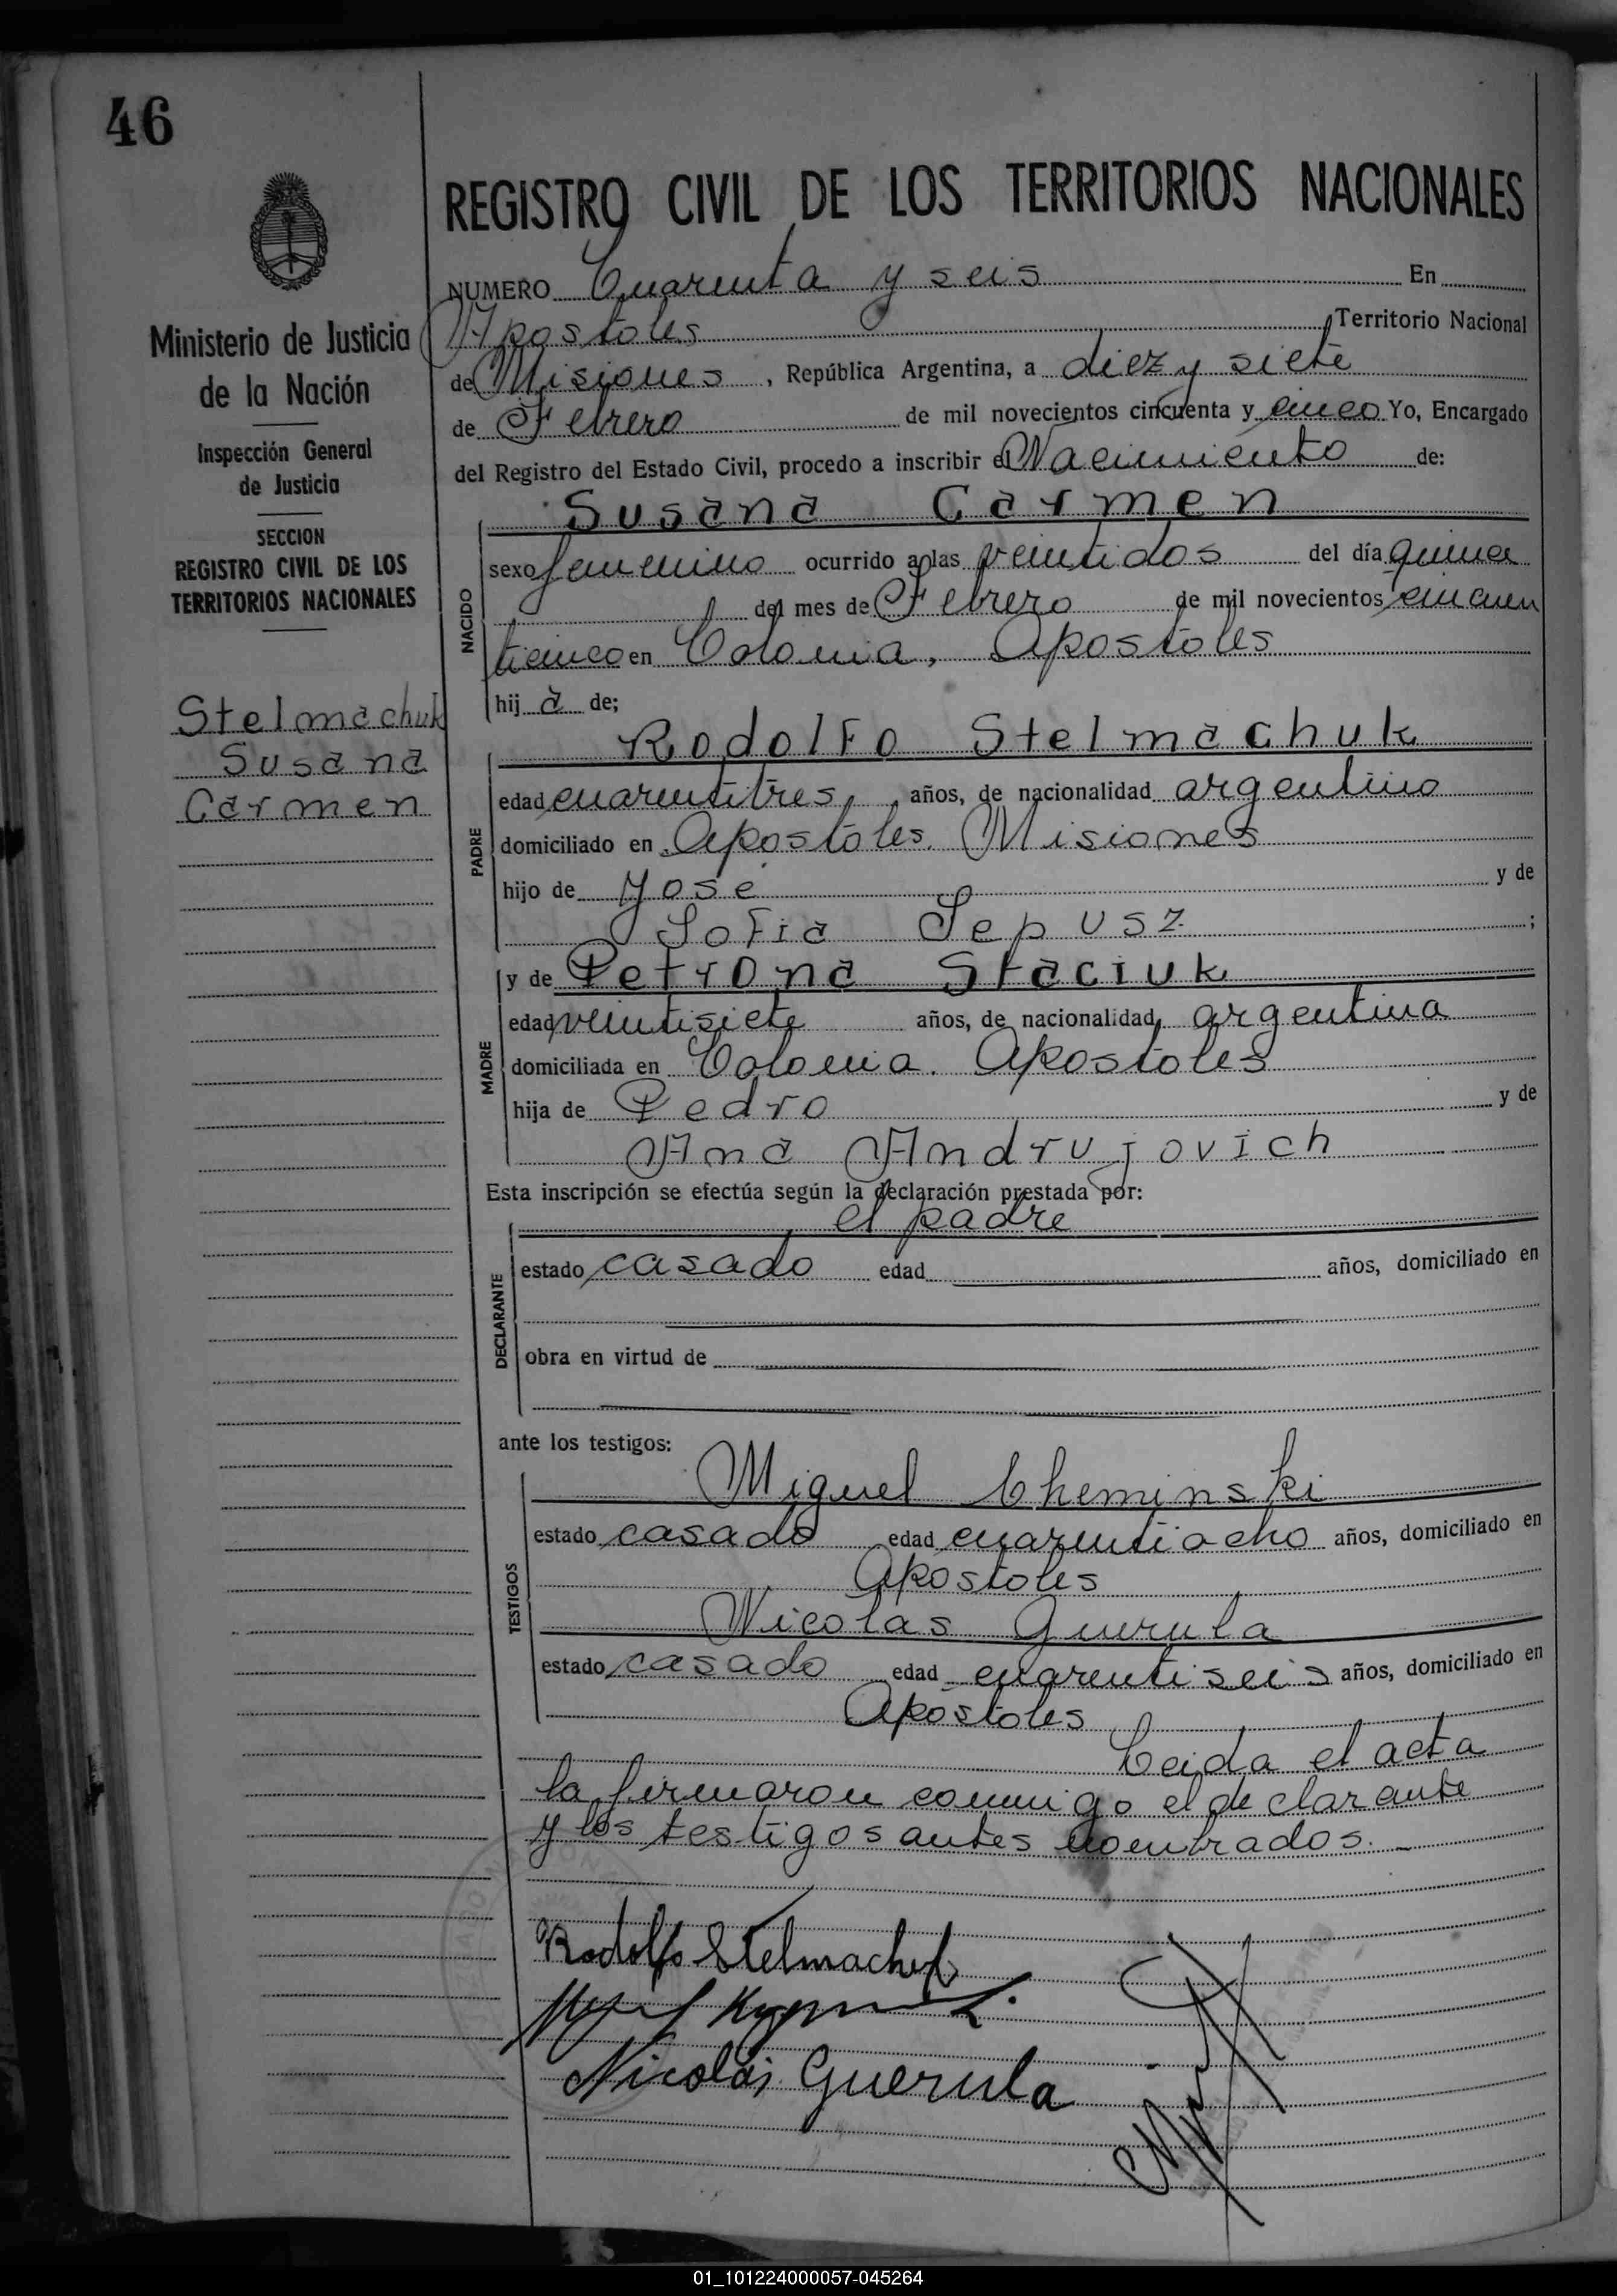 46
REGISTRO CIVIL DE LOS TERRITORIOS NACIONALES
NUMERO Cuarenta y seis En
Apostoles Territorio Nacional
de Misiones, República Argentina, a diez y siete
de Febrero de mil novecientos cincuenta y cinco Yo, Encargado
del Registro del Estado Civil, procedo a inscribir el Nacimiento de:
Ministerio de Justicia
de la Nación
Inspección General
de Justicia
SECCION
REGISTRO CIVIL DE LOS
TERRITORIOS NACIONALES
Stelmachuk
Susana
Carmen
NACIDO
Susana Carmen
sexo femenino ocurrido a las veintidos del día quince
del mes de Febrero de mil novecientos cincuen
ticinco en Colonia, Apostoles
hij a de;
PADRE
Rodolfo Stelmachuk
edad cuarentitres, años, de nacionalidad argentino
domiciliado en Apostoles. Misiones
hijo de Jose y de
Sofia Sepusz ;
MADRE
y de Petrona Staciuk
edad veintisiete años, de nacionalidad argentina
domiciliada en Colonia. Apostoles
hija de Pedro y de
Ana Andrujovich
Esta inscripción se efectúa según la declaración prestada por:
DECLARANTE
el padre
estado casado edad años, domiciliado en
obra en virtud de
ante los testigos:
TESTIGOS
Miguel Cheminski
estado casado edad cuarentiocho años, domiciliado en
Apostoles
Nicolas Guerula
estado casado edad cuarentiseis años, domiciliado en
Apostoles
Leida el acta
la firmaron conmigo el declarante
y los testigos antes nombrados.
Rodolfo Stelmachuk
Nicolás Guerula
01_101224000057-045264